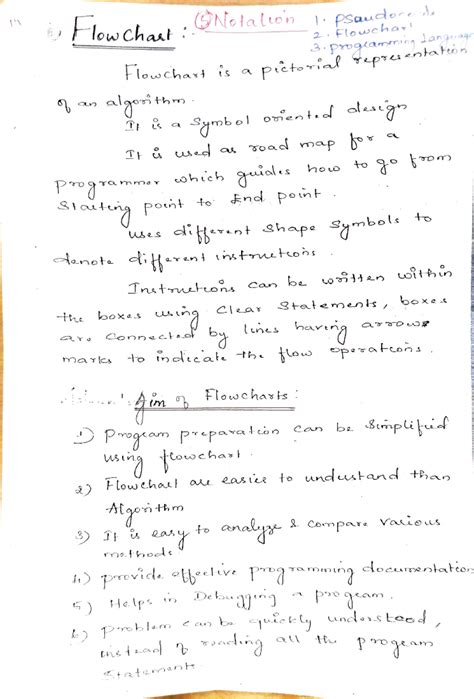 Flowchart :-
⑤ Notation
1. Psaudocode
2. Flowchart
3. programming language
Flowchart is a pictorial representation
of an algorithm.
It is a Symbol oriented design
It is used as road map for a
programmer which guides how to go from
Starting point to End point.
uses different Shape Symbols to
denote different instructions.
Instructions can be written within
the boxes using Clear Statements, boxes
are Connected by lines having arrow
marks to indicate the flow operations.
Aim of Flowcharts :
1) Program preparation can be Simplified
using flowchart.
2) Flowchart are easier to understand than
Algorithm
3) It is easy to analyze & compare various
methods
4) provide effective programming documentation
5) Helps in Debugging a program.
6) Problem can be quickly understood,
instead of reading all the program
Statements